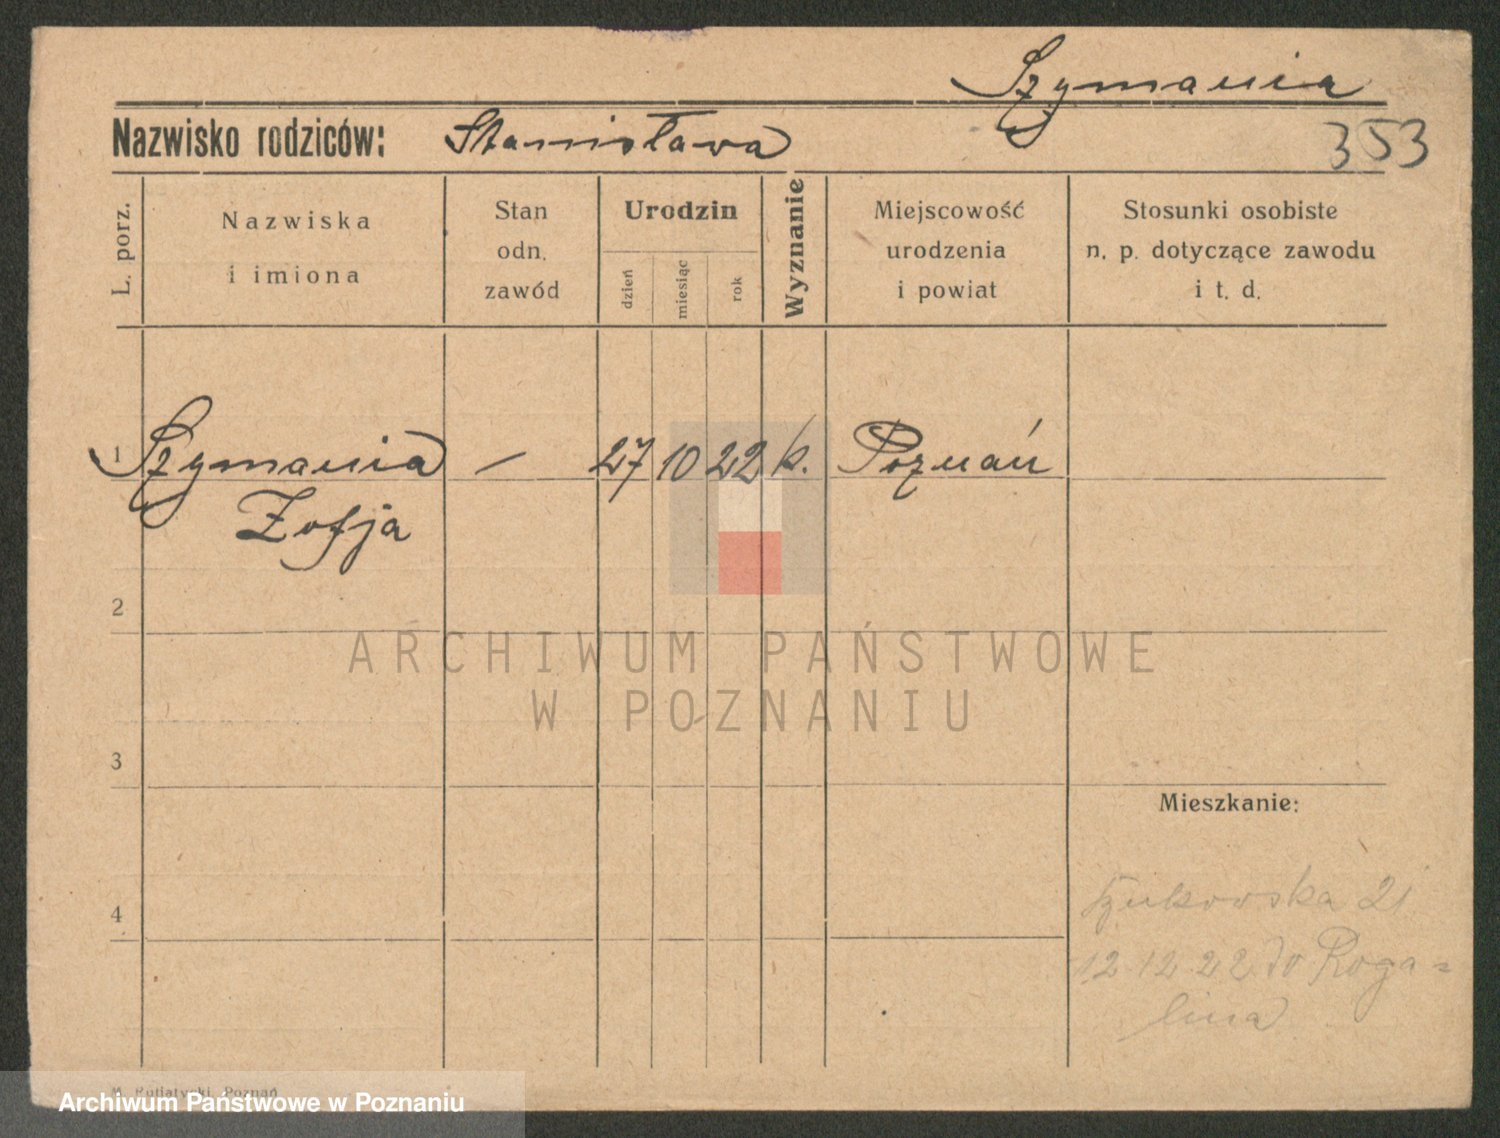 Szymania
Nazwisko rodziców: Stanisława
353
L. porz.
Nazwiska
i imiona
Stan
odn.
zawód
Urodzin
dzień
miesiąc
rok
Wyznanie
Miejscowość
urodzenia
i powiat
Stosunki osobiste
n. p. dotyczące zawodu
i t. d.
1 Szymania – 27 10 22 k. Poznań
Zofja
2
ARCHIWUM PAŃSTWOWE
W POZNANIU
3
Mieszkanie:
4
21
12 12 22 do Roga=
lina
M. Putiatycki, Poznań
Archiwum Państwowe w Poznaniu